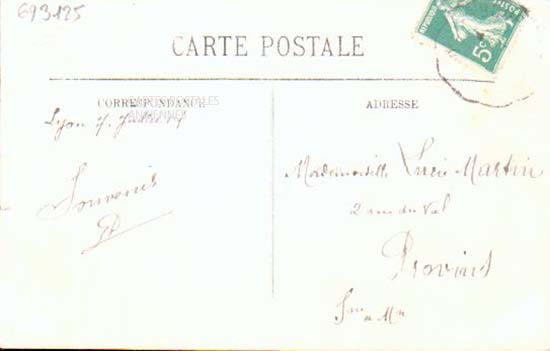 693125
CARTE POSTALE
CORRESPONDANCE
CARTES POSTALES
ANCIENNES
ADRESSE
5c
Lyon 7 Juillet
Souvenir
Mademoiselle Lucie Martin
2 rue du Val
Provins